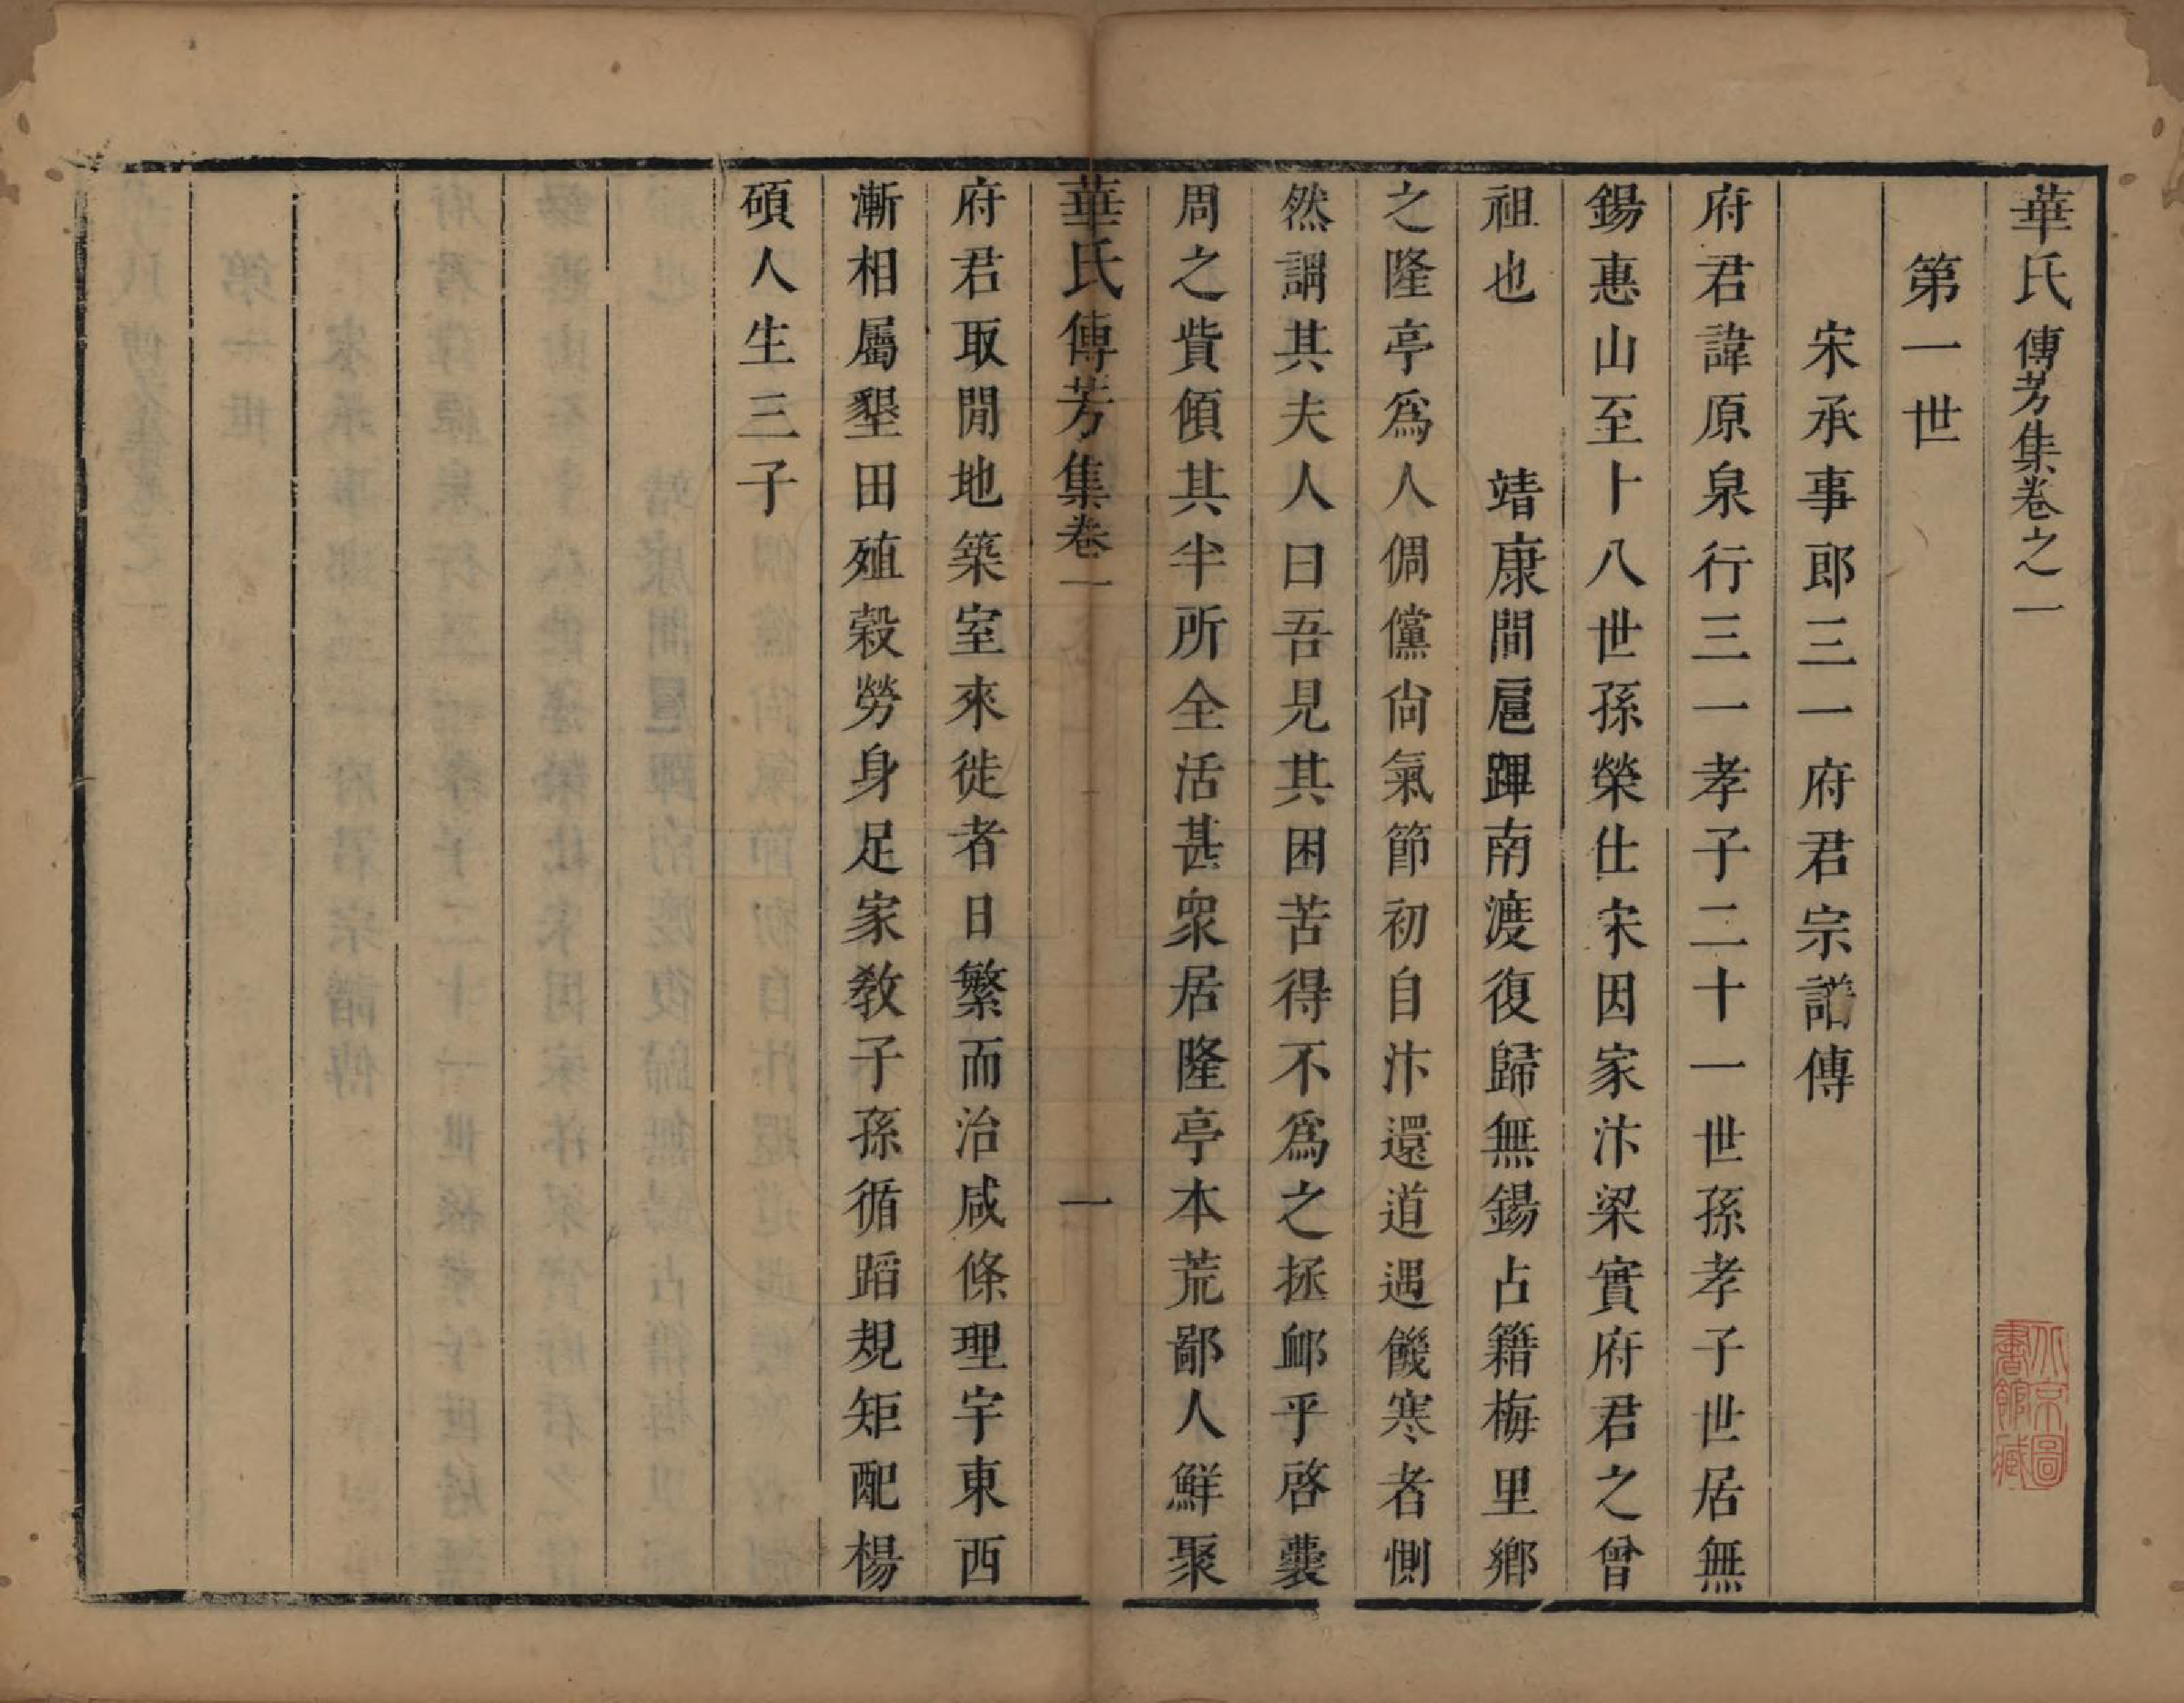 華氏傳芳集卷之一
第一世
宋承事郎三一府君宗譜傳
府君諱原泉行三一孝子二十一世孫孝子世居無
錫惠山至十八世孫榮仕宋因家汴梁實府君之曾
祖也　　靖康間扈蹕南渡復歸無錫占籍梅里鄉
之隆亭爲人倜儻尙氣節初自汴還道遇饑寒者惻
然謂其夫人曰吾見其困苦得不爲之拯卹乎啓囊
周之貲傾其半所全活甚衆居隆亭本荒鄙人鮮聚
華氏傳芳集卷一　一
府君取閒地築室來徙者日繁而治咸條理宇東西
漸相屬墾田殖穀勞身足家敎子孫循蹈規矩配楊
碩人生三子
北京圖書館藏